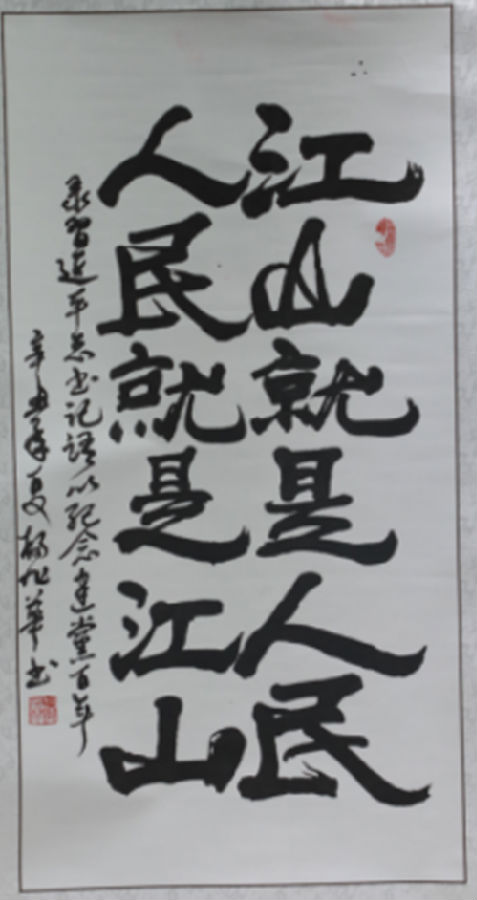 江山就是人民
人民就是江山
录习近平总书记语以纪念建党百年
辛丑年夏杨旭华书